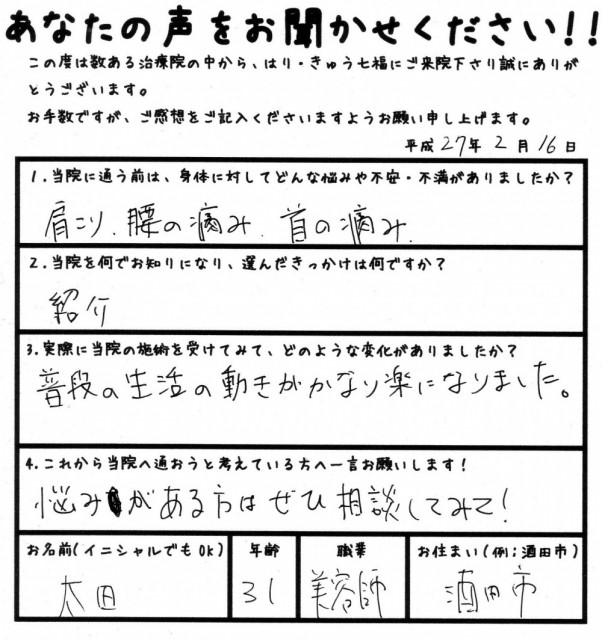 あなたの声をお聞かせください!!
この度は数ある治療院の中から、はり・きゅう七福にご来院下さり誠にありが
とうございます。
お手数ですが、ご感想をご記入くださいますようお願い申し上げます。
平成 27年 2月 16日
1.当院に通う前は、身体に対してどんな悩みや不安・不満がありましたか?
肩こり、腰の痛み、首の痛み、
2.当院を何でお知りになり、選んだきっかけは何ですか?
紹介
3.実際に当院の施術を受けてみて、どのような変化がありましたか?
普段の生活の動きがかなり楽になりました。
4.これから当院へ通おうと考えている方へ一言お願いします!
悩みがある方はぜひ相談してみて!
お名前(イニシャルでもOK) 年齢 職業 お住まい(例;酒田市)
太田 31 美容師 酒田市